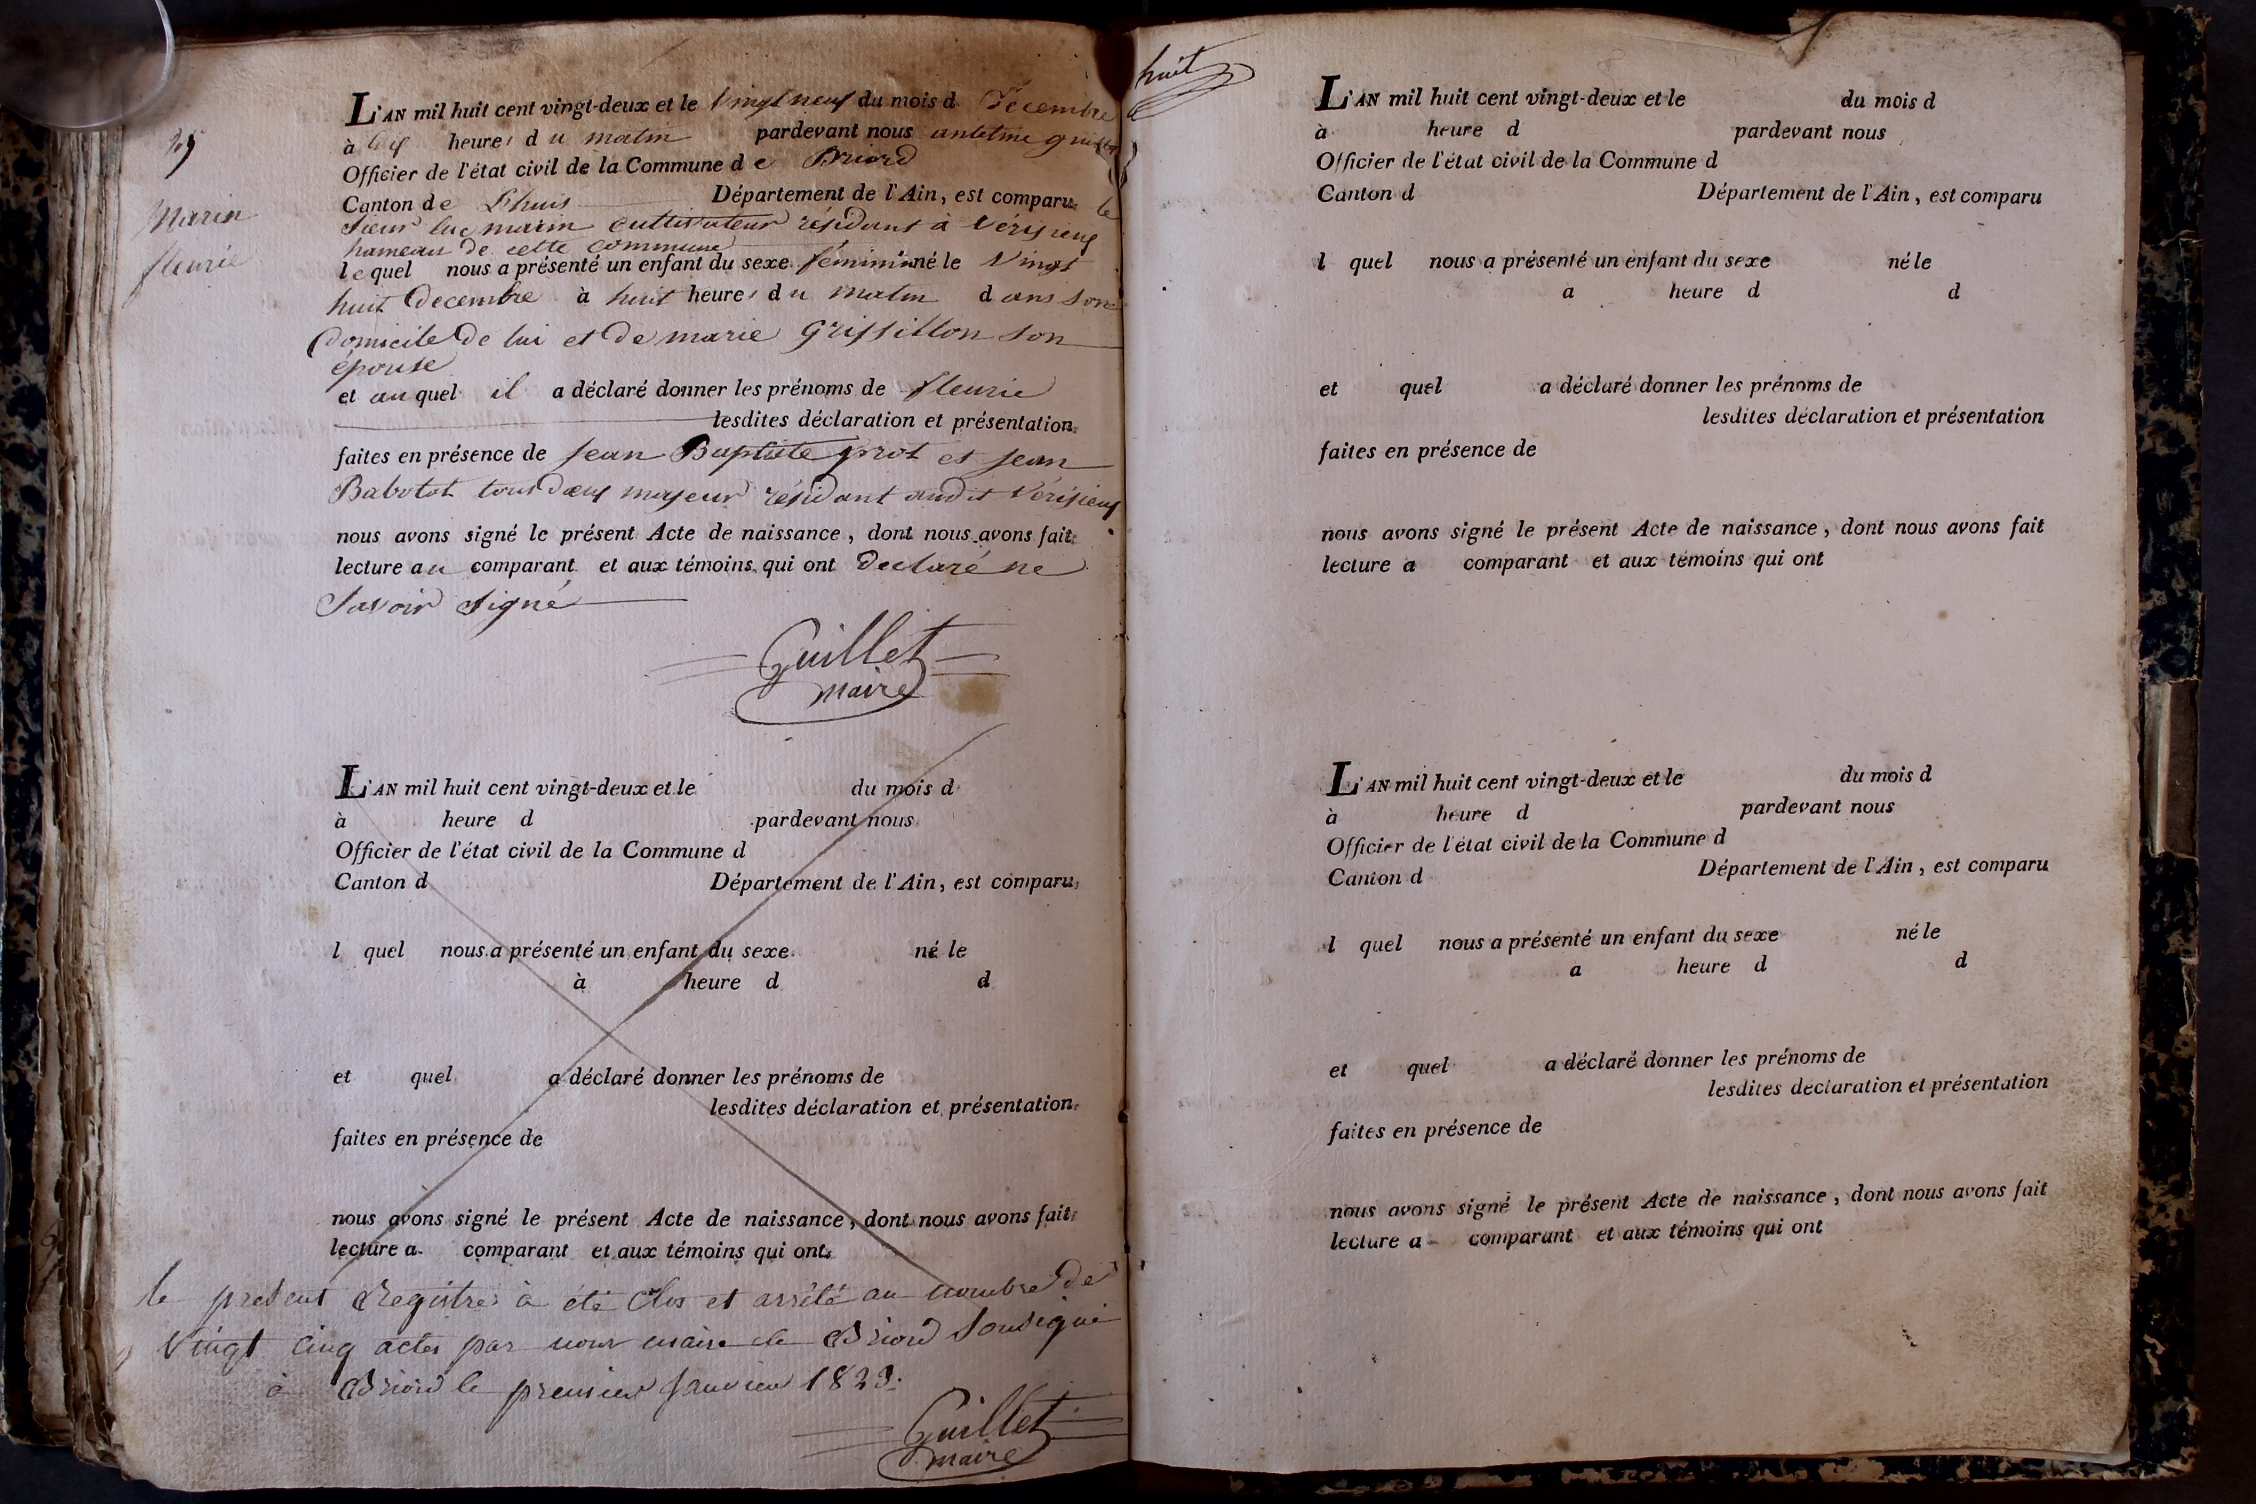 25
Marin
fleurie
L'AN mil huit cent vingt-deux et le vingt neuf du mois d decembre
à dix heures du matin pardevant nous antelme guillet
Officier de l'état civil de la Commune de Briord
Canton de Lhuis Département de l'Ain, est comparu le
sieur luc marin cultivateur résidant à vérizieux
hameau de cette commune
lequel nous a présenté un enfant du sexe féminin né le vingt
huit decembre à huit heures du matin dans son
domicile de lui et de marie Grissillon son
épouse
et auquel il a déclaré donner les prénoms de fleurie
lesdites déclaration et présentation
faites en présence de jean Baptiste prot et jean
Babolat tous deux majeur résidant audit vérizieux
nous avons signé le présent Acte de naissance, dont nous avons fait
lecture au comparant et aux témoins qui ont declaré ne
savoir signé
Guillet
maire
L'AN mil huit cent vingt-deux et le du mois d
à heure d pardevant nous
Officier de l'état civil de la Commune d
Canton d Département de l'Ain, est comparu
l quel nous a présenté un enfant du sexe né le
à heure d d
et quel a déclaré donner les prénoms de
lesdites déclaration et présentation
faites en présence de
nous avons signé le présent Acte de naissance, dont nous avons fait
lecture a comparant et aux témoins qui ont
le present Registre à été Clos et arrêté au nombre de
vingt cinq actes par nous maire de Briord Sousigné
à Briord le premier Janvier 1823.
Guillet
maire
huit
L'AN mil huit cent vingt-deux et le du mois d
à heure d pardevant nous
Officier de l'état civil de la Commune d
Canton d Département de l'Ain, est comparu
l quel nous a présenté un enfant du sexe né le
a heure d d
et quel a déclaré donner les prénoms de
lesdites déclaration et présentation
faites en présence de
nous avons signé le présent Acte de naissance, dont nous avons fait
lecture a comparant et aux témoins qui ont
L'AN mil huit cent vingt-deux et le du mois d
à heure d pardevant nous
Officier de l'état civil de la Commune d
Canton d Département de l'Ain, est comparu
l quel nous a présenté un enfant du sexe né le
a heure d d
et quel a déclaré donner les prénoms de
lesdites déclaration et présentation
faites en présence de
nous avons signé le présent Acte de naissance, dont nous avons fait
lecture a comparant et aux témoins qui ont